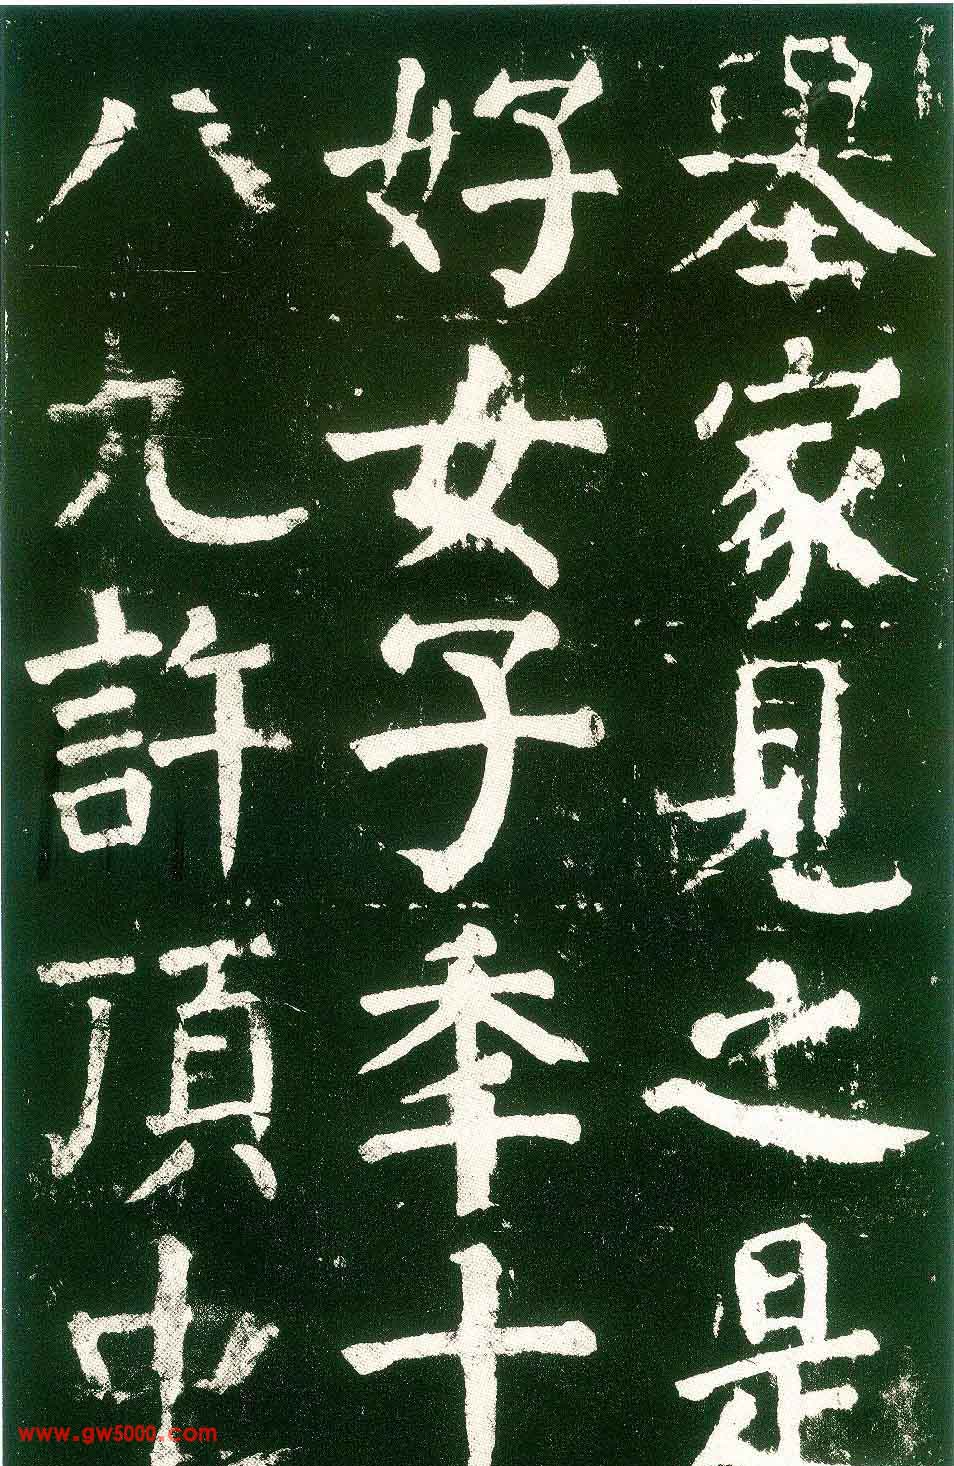 舉家見之是
好女子秊十
八九許頂中
www.gw5000.com